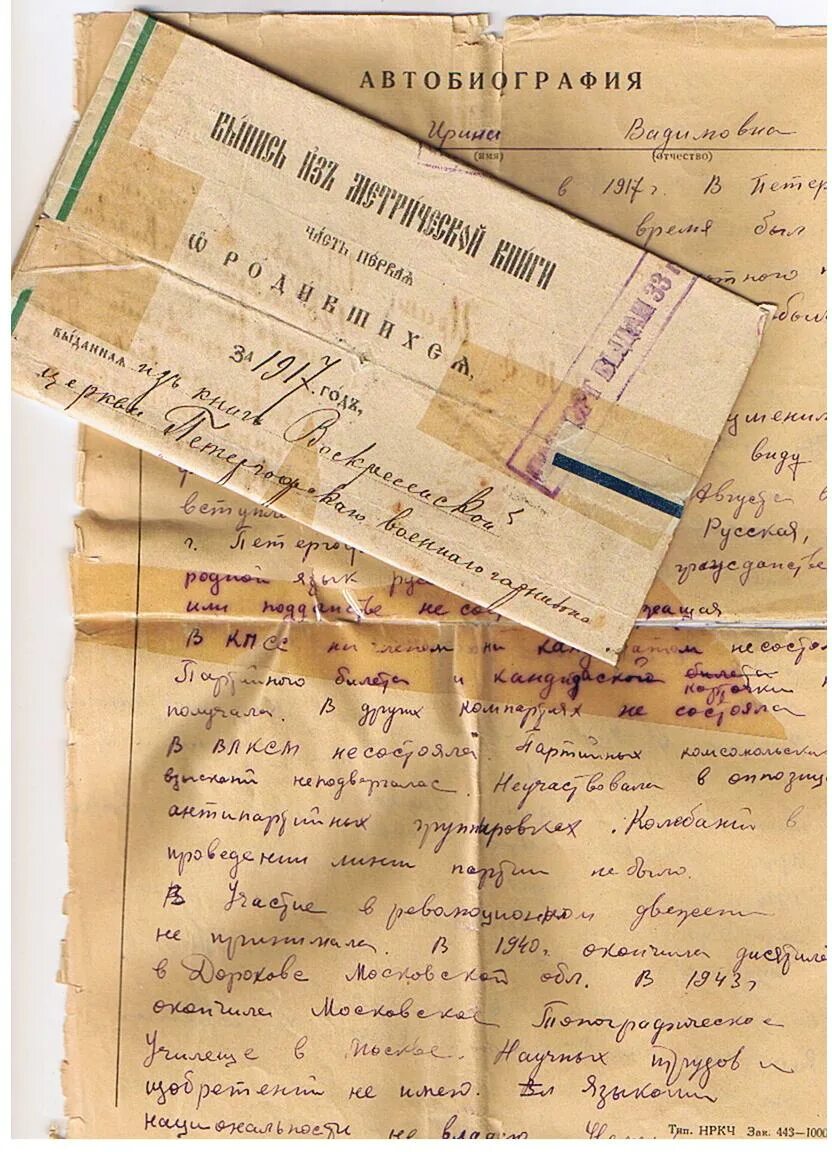 АВТОБИОГРАФИЯ
Ирина Вадимовна
(имя) (отчество)
в 1917 г. В Петер
время был
был
виду
Августа в
Русская,
г. Петергоф
родной язык рус
или подданстве не сос
В КПСС ни членом ни кандидатом несостоя
Партийного билета и кандидаского билета
карточки
получала. В других компартиях не состояла
В ВЛКСМ несостояла. Партийных комсомольских
взысканий неподвергалас. Неучаствовала в оппозиц
антипартийных группировках. Колебаний в
проведении линии партии не было.
В Участие в революционном движении
не принимала. В 1940г. окончила десятиле
в Дорохове Московской обл. В 1943г
окончила Московское Топографическое
Училище в Москве. Научных трудов и
изобретений не имею. Вл Языками
национальности не владею
Тип. НРКЧ Зак. 443-1000
ВЫПИСЬ ИЗЪ МЕТРИЧЕСКОЙ КНИГИ
ЧАСТЬ ПЕРВАЯ
Ѡ РОДИВШИХСЯ,
ЗА 1917 ГОДЪ,
ВЫДАННАЯ изъ книгъ Воскресенской
церкви Петергофскаго военнаго госпиталя
ПАСПОРТ ВЫДАН 33 г